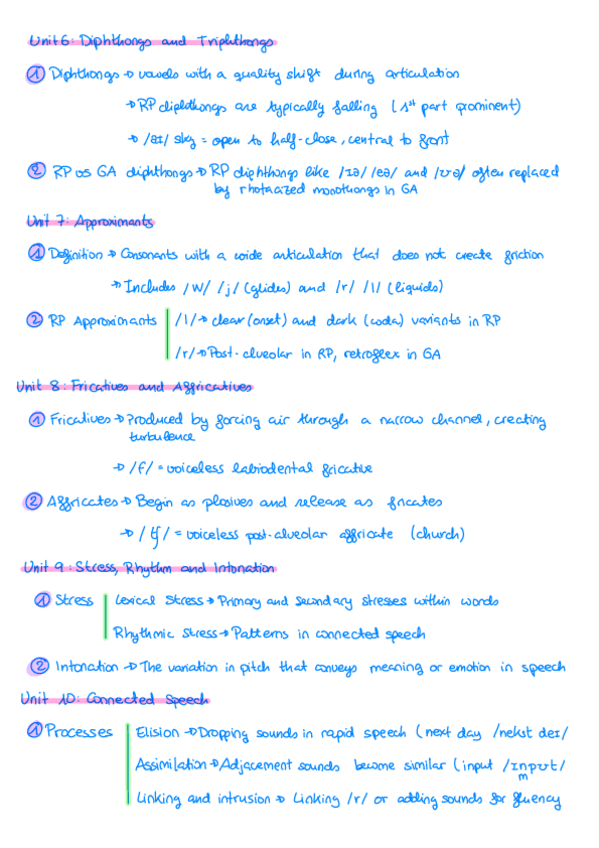 Unit 6: Diphthongs and Triphthongs
1 Diphthongs → vowels with a quality shift during articulation
→ RP diphthongs are typically falling (1st part prominent)
→ /aɪ/ sky = open to half-close, central to front
2 RP vs GA diphthongs → RP diphthongs like /ɪə/ /eə/ and /ʊə/ often replaced
by rhotacized monothongs in GA
Unit 7: Approximants
1 Definition → Consonants with a wide articulation that does not create friction
→ Includes /w/ /j/ (glides) and /r/ /l/ (liquids)
2 RP Approximants /l/ → clear (onset) and dark (coda) variants in RP
/r/ → Post-alveolar in RP, retroflex in GA
Unit 8: Fricatives and Affricatives
1 Fricatives → Produced by forcing air through a narrow channel, creating
turbulence
→ /f/ = voiceless labiodental fricative
2 Affricates → Begin as plosives and release as fricates
→ /tʃ/ = voiceless post-alveolar affricate (church)
Unit 9: Stress, Rhythm and Intonation
1 Stress Lexical Stress → Primary and secondary stresses within words
Rhythmic Stress → Patterns in connected speech
2 Intonation → The variation in pitch that conveys meaning or emotion in speech
Unit 10: Connected Speech
1 Processes Elision → Dropping sounds in rapid speech (next day /nekst deɪ/
Assimilation → Adjacement sounds become similar (input /ɪnpʊt/
m
Linking and intrusion → Linking /r/ or adding sounds for fluency